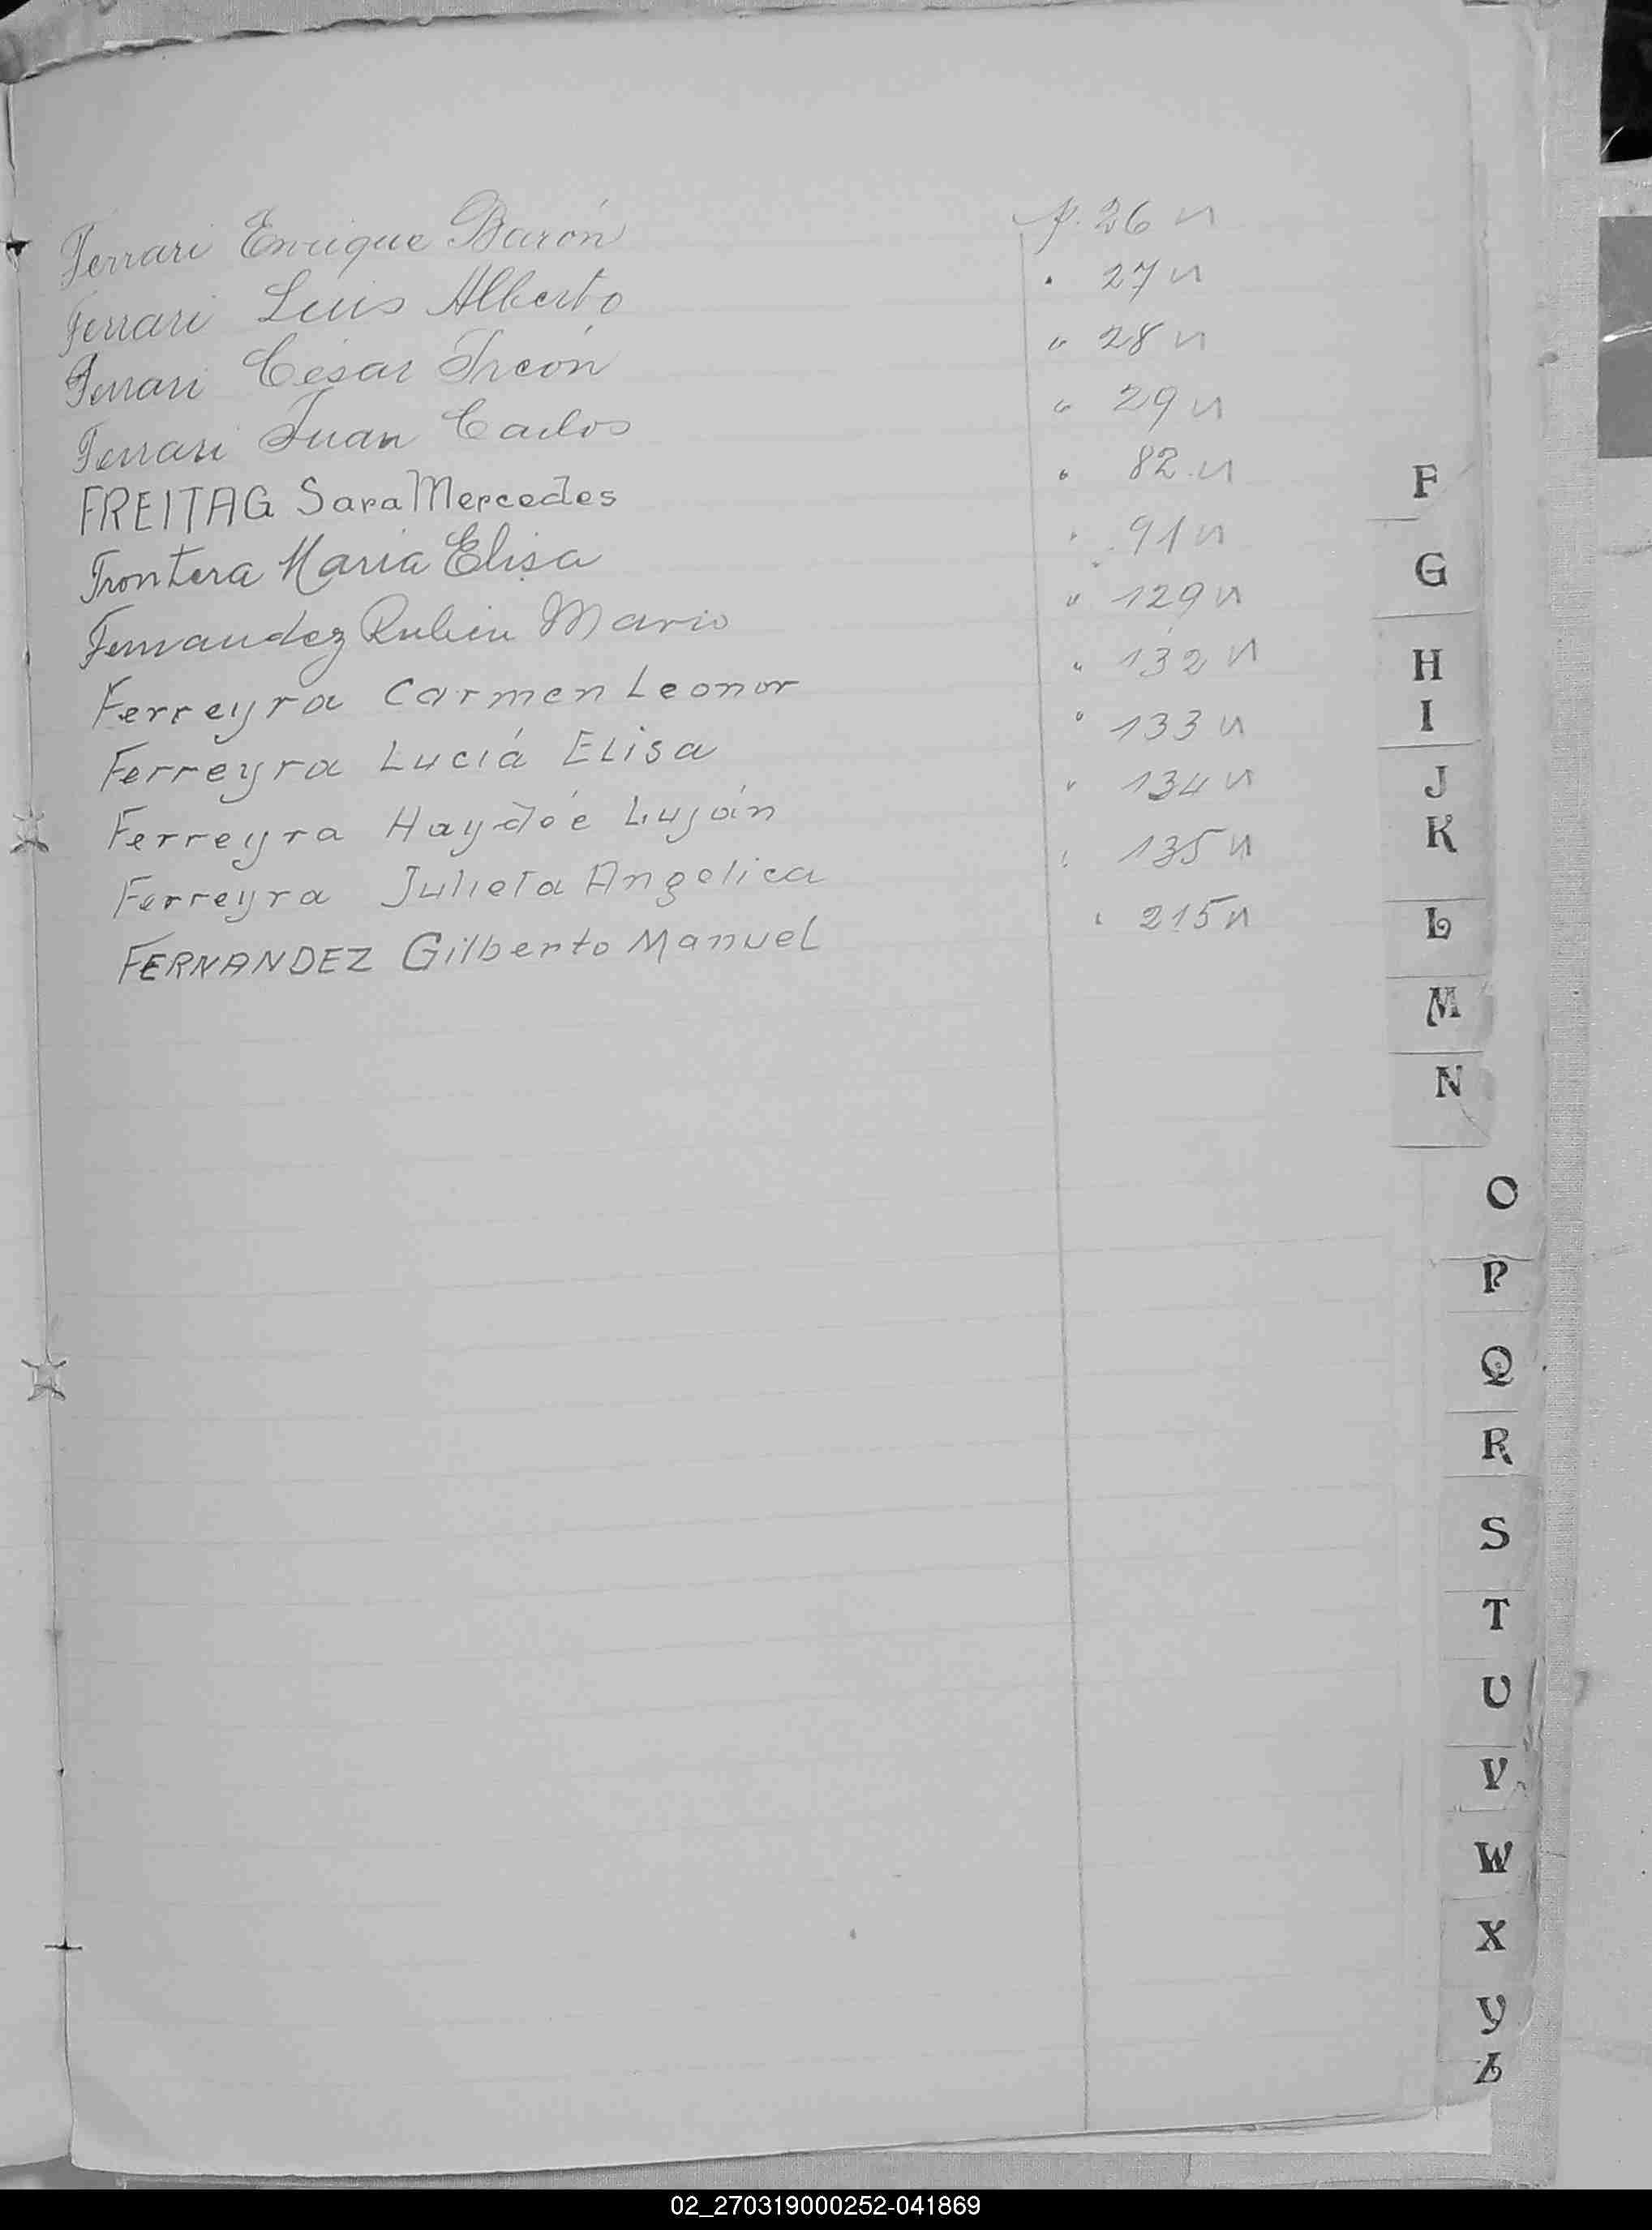 Ferrari Enrique Barón p. 26 n
Ferrari Luis Alberto . 27 n
Ferrari César Ireón " 28 n
Ferrari Juan Carlos " 29 n
FREITAG Sara Mercedes " 82 n
Frontera Maria Elisa " 91 n
Fernandez Ruben Mario " 129 n
Ferreyra Carmen Leonor " 132 n
Ferreyra Luciá Elisa " 133 n
Ferreyra Haydée Luján " 134 n
Ferreyra Julieta Angelica " 135 n
FERNANDEZ Gilberto Manuel " 215 n
F
G
H
I
J
K
L
M
N
O
P
Q
R
S
T
U
V
W
X
Y
Z
02_270319000252-041869